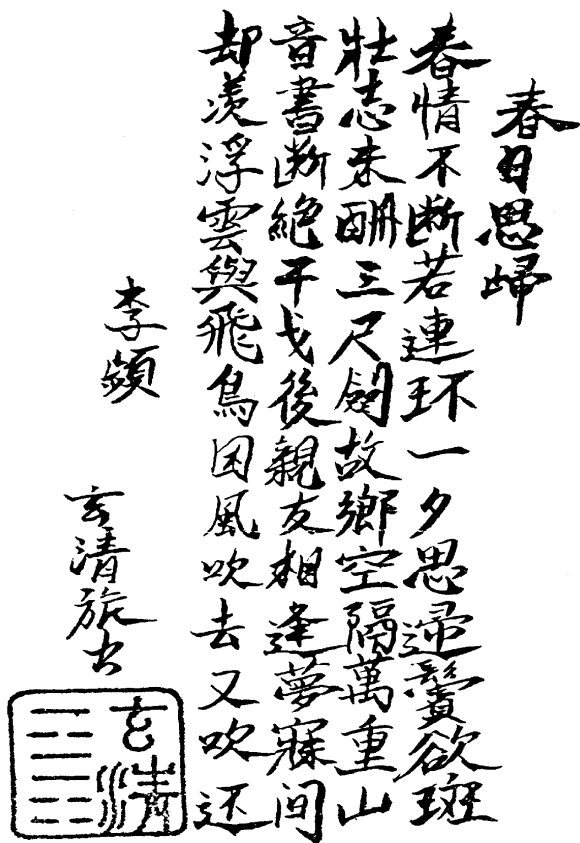 春日思歸
春情不断若連环一夕思歸鬢欲斑
壯志未酬三尺劍故鄉空隔萬重山
音書断絶干戈後親友相逢夢寐间
却羡浮雲與飛鳥因風吹去又吹还
李頻
玄清旅
玄清